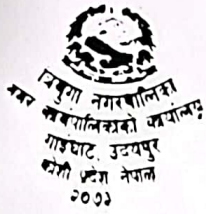 त्रियुगा नगरपालिका
नगर कार्यपालिकाको कार्यालय
गाईघाट, उदयपुर
कोशी प्रदेश नेपाल
२०७३